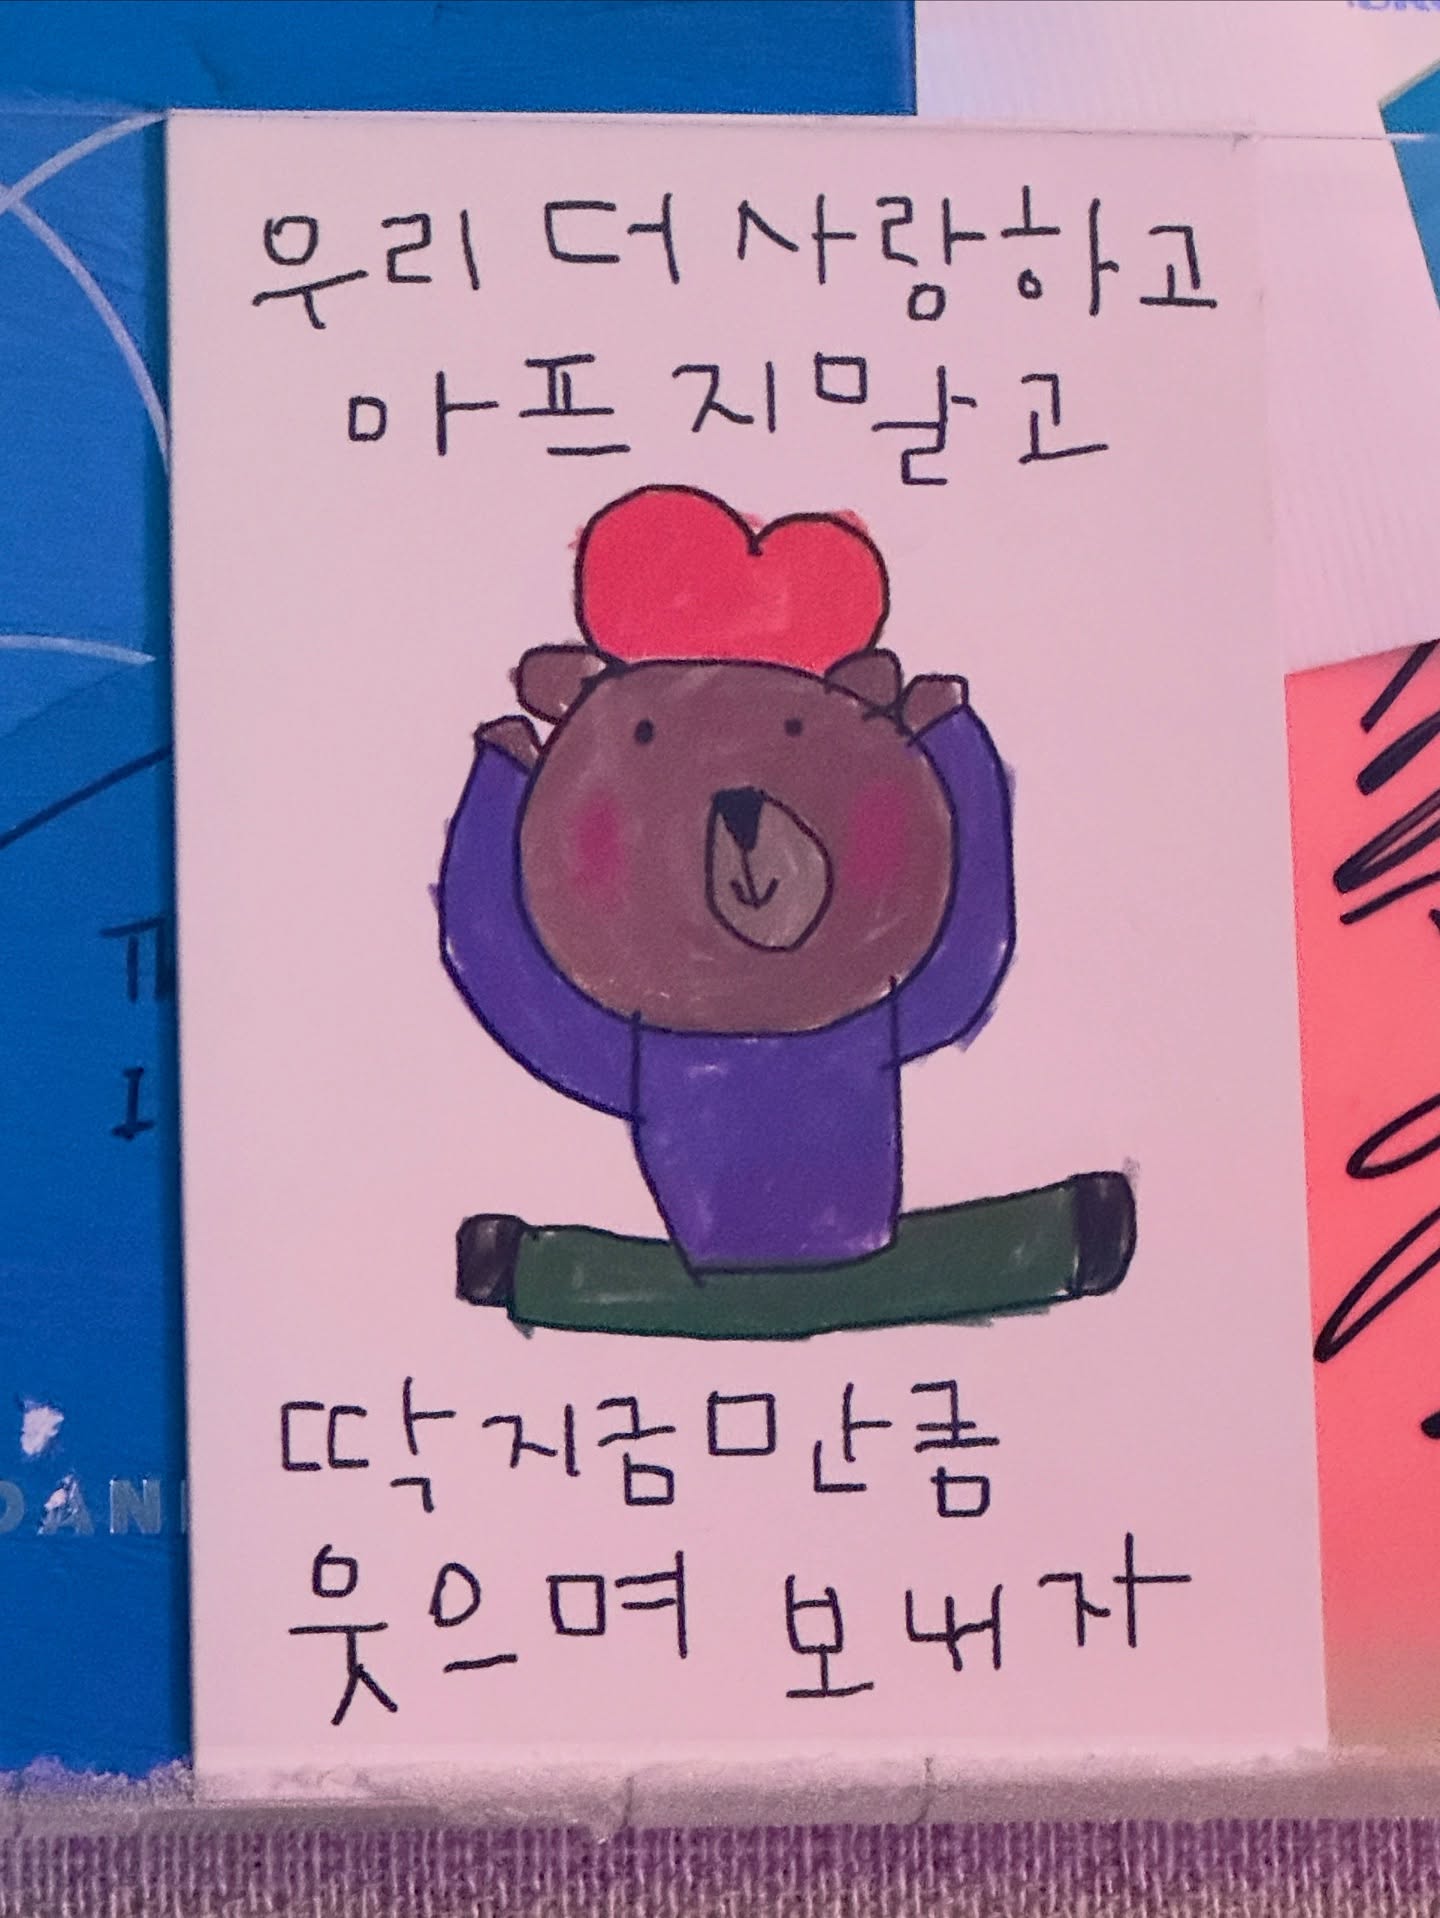 우리 더 사랑하고
아프지 말고
딱 지금만큼
웃으며 보내자
DAN